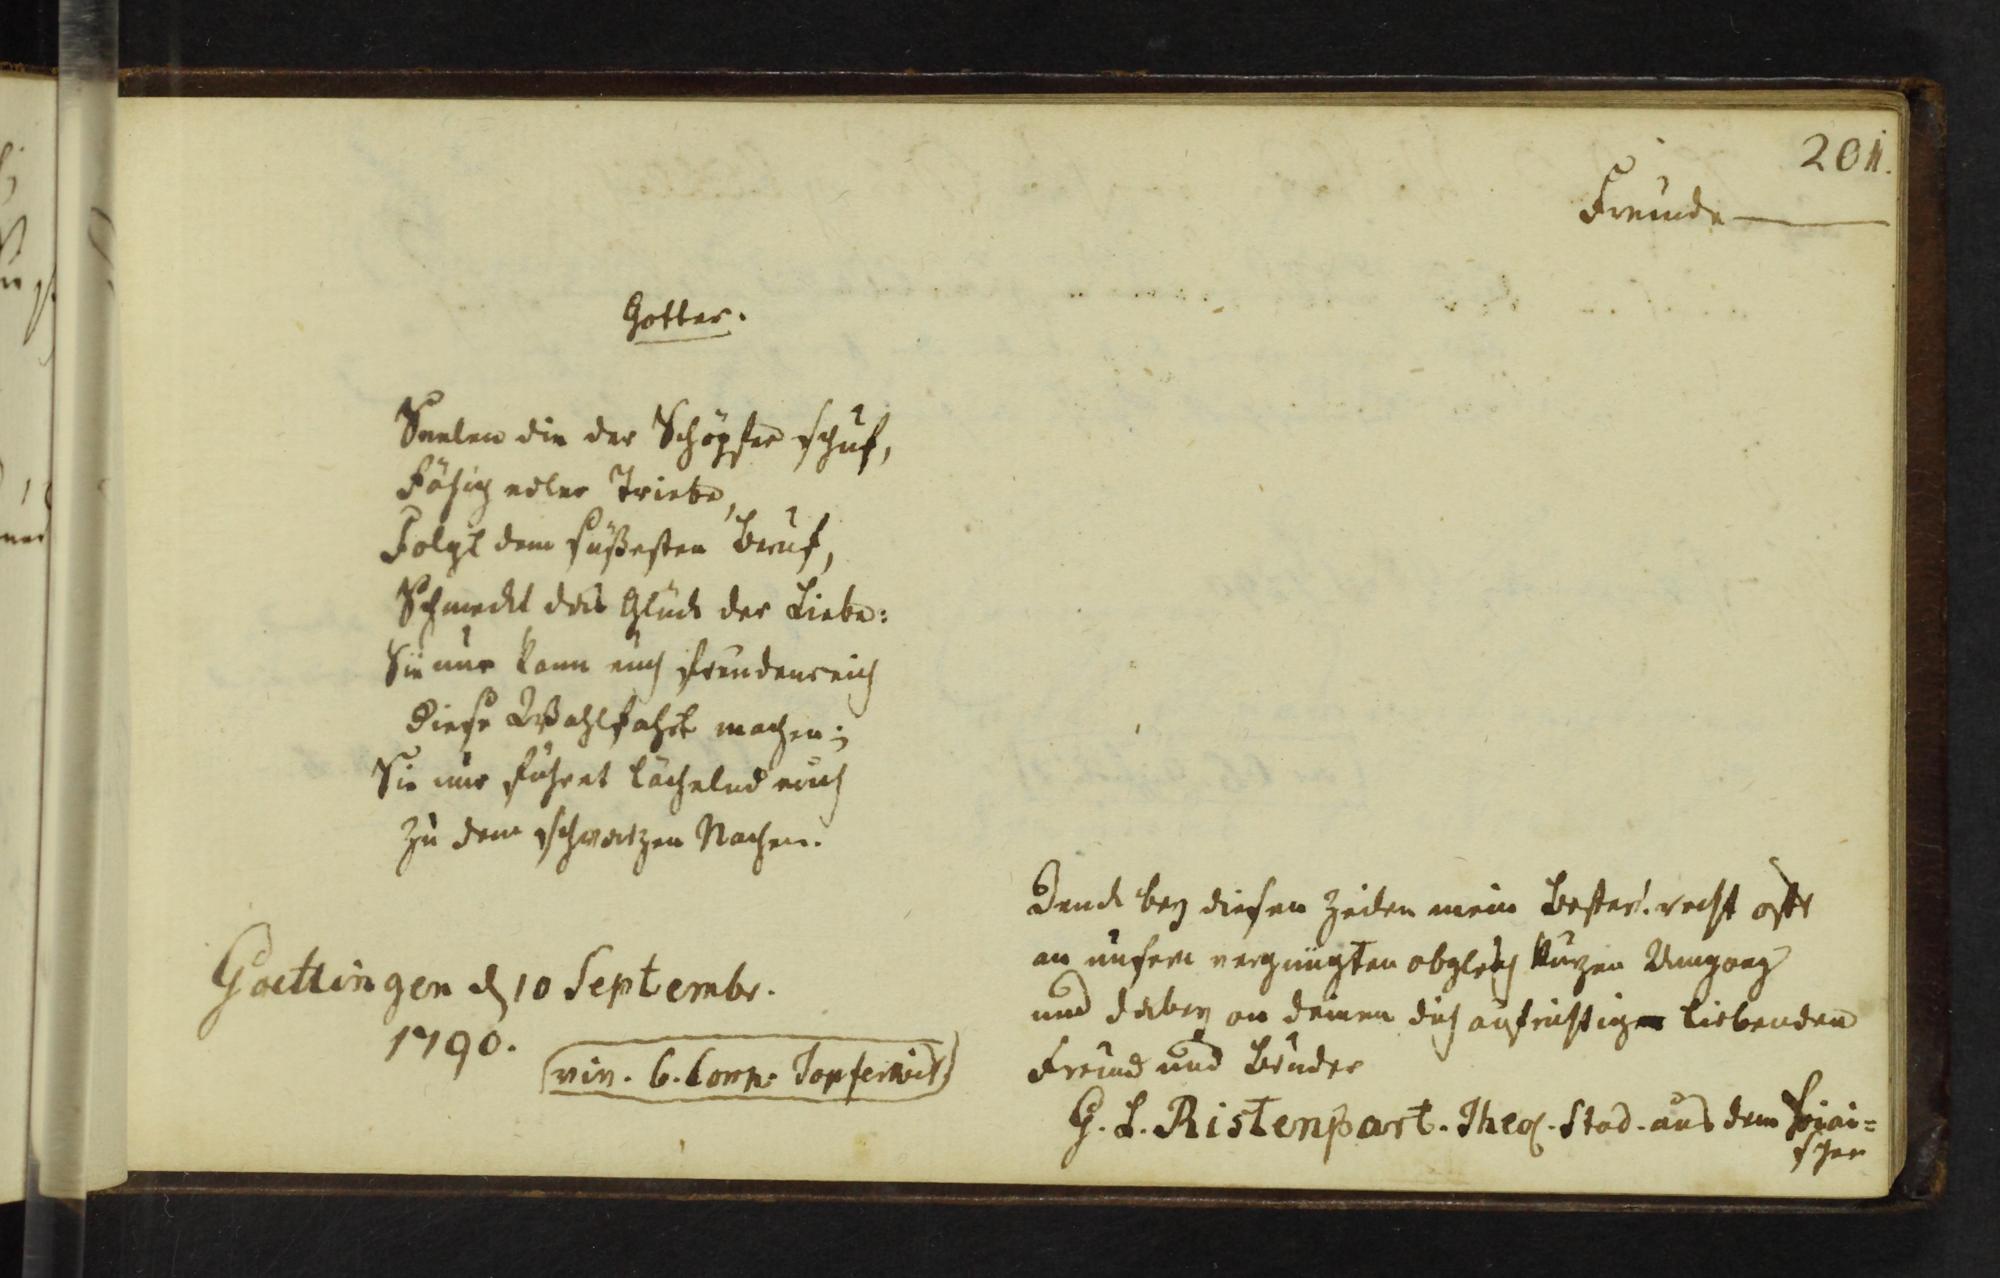 201.
Freunde
Gotter.
Seelen die der Schöpfer schuf,
Fähig edler Triebe,
Folgt dem süßesten Beruf,
Schmeckt das Glück der Liebe:
Sie nur kann euch freudenreich
Diese Wallfahrt machen;
Sie nur führet lächelnd euch
Zu dem schwarzen Nachen.
Goettingen d 10 Septembr.
1790.
viv. C. Comp:
Denck bey diesen Zeilen mein Bester! recht oft
an unsern vergnügten obgleich kurzen Umgang
und dabey an deinen dich aufrichtig liebenden
Freund und Bruder
G. L. Ristenpart. Theol. Stud. aus dem
schen